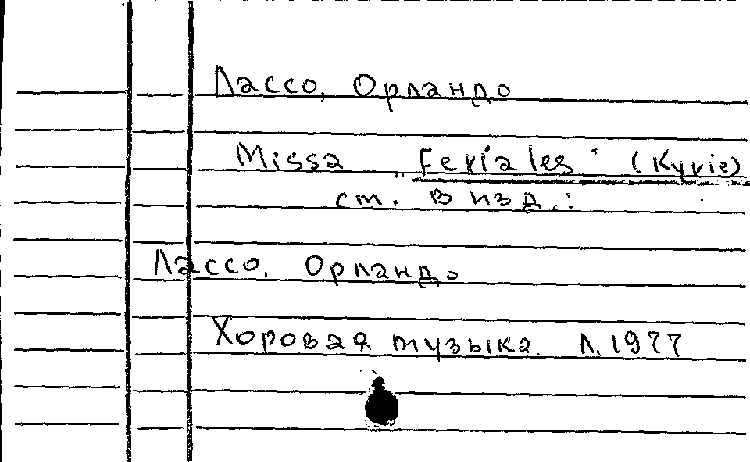 Лассо, Орландо
Missa „Feriales" (Kyrie)
см. в изд.:
Лассо, Орландо
Хоровая музыка. Л. 1977